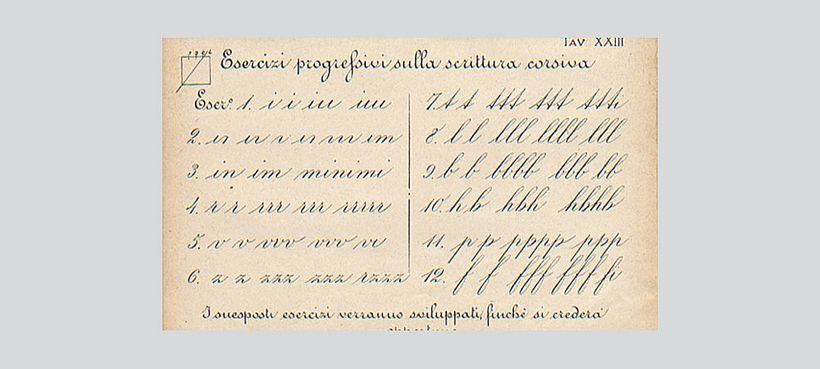 TAV. XXIII
Esercizi progressivi sulla scrittura corsiva
Eser.º 1. i i iu iuu
2. n m
3. in im minimi
4. r r rrr rrr rrrrr
5. v v vvv vvv vi
6. z z zzz zzz rzzz
7. t t ttt ttt ttti
8. l l lll llll lll
9. b b bbbb bbb bb
10. h h hhh hhhh
11. p p pppp ppp
12. f f fff fff fi
I suesposti esercizi verranno sviluppati, finchè si crederà